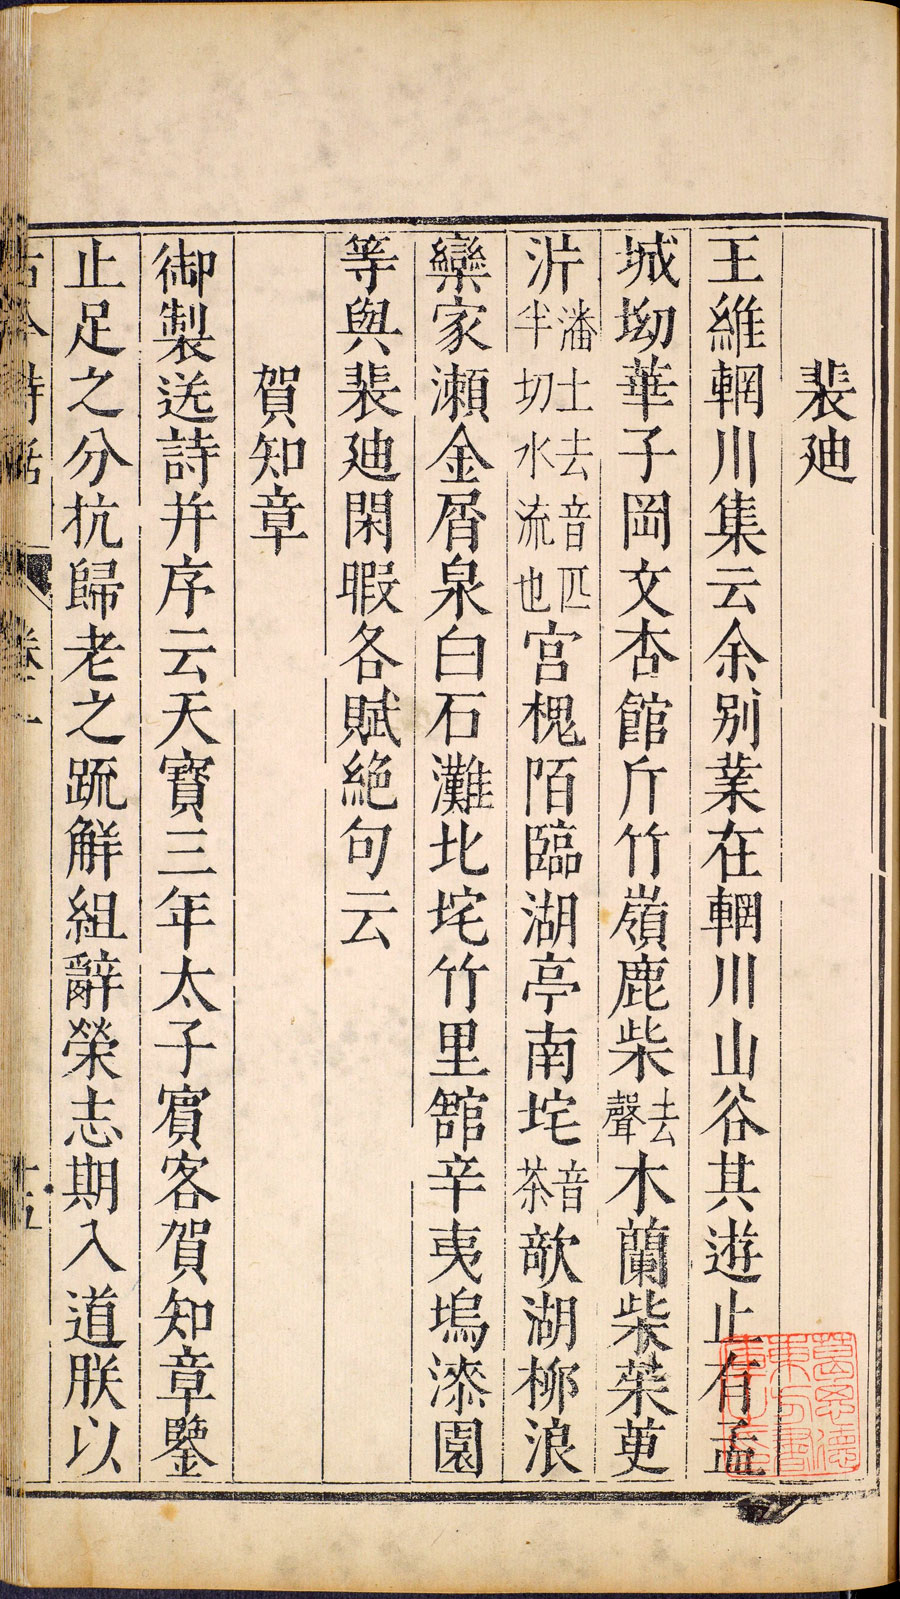 裴廸
王維輞川集云余别業在輞川山谷其遊止有孟
城坳華子岡文杏館斤竹嶺鹿柴去聲木蘭柴茱萸
沜潘土去音匹半切水流也宫槐陌臨湖亭南垞音茶欹湖柳浪
欒家瀬金屑泉白石灘北垞竹里舘辛夷塢漆園
等與裴廸閑暇各賦絶句云
賀知章
御製送詩并序云天寶三年太子賓客賀知章鑒
止足之分抗歸老之䟽解組辭榮志期入道朕以
古今詩話
十五
葛思德
東方書